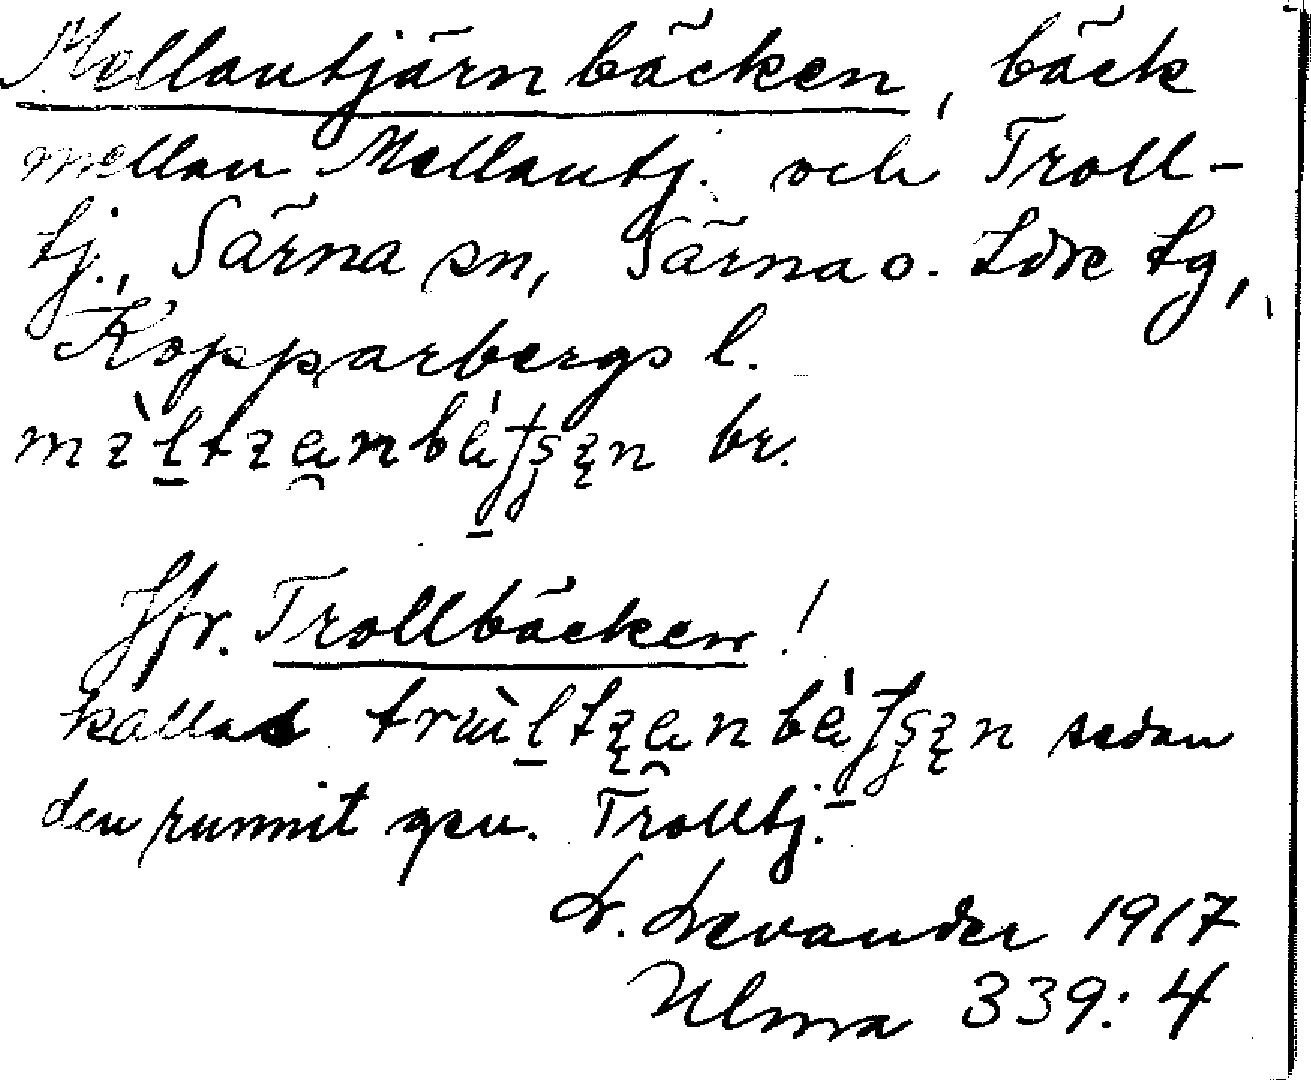 Mellantjärnbäcken, bäck
mellan Mellantj. och Troll-
tj., Särna sn, Särna o. Idre tg,
Kopparbergs l.
br.
Jfr. Trollbäcken!
kallas sedan
den runnit gen. Trolltj.
L. Levander 1917
Ulma 339:4